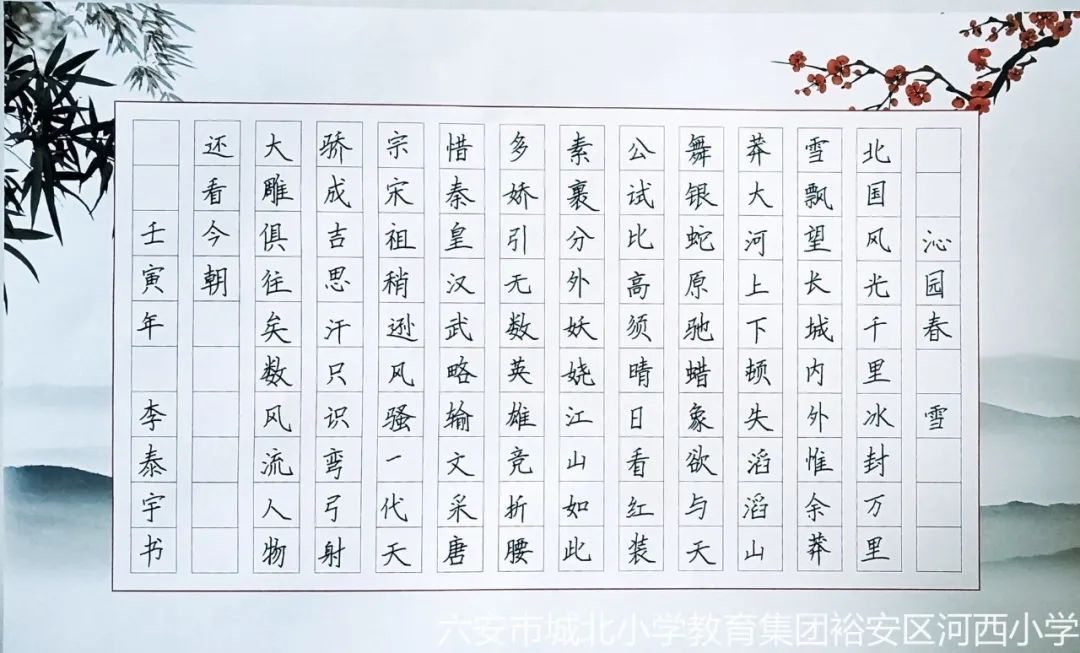 沁园春 雪
北国风光千里冰封万里
雪飘望长城内外惟余莽
莽大河上下顿失滔滔山
舞银蛇原驰蜡象欲与天
公试比高须晴日看红装
素裹分外妖娆江山如此
多娇引无数英雄竞折腰
惜秦皇汉武略输文采唐
宗宋祖稍逊风骚一代天
骄成吉思汗只识弯弓射
大雕俱往矣数风流人物
还看今朝
壬寅年 李泰宇书
六安市城北小学教育集团裕安区河西小学